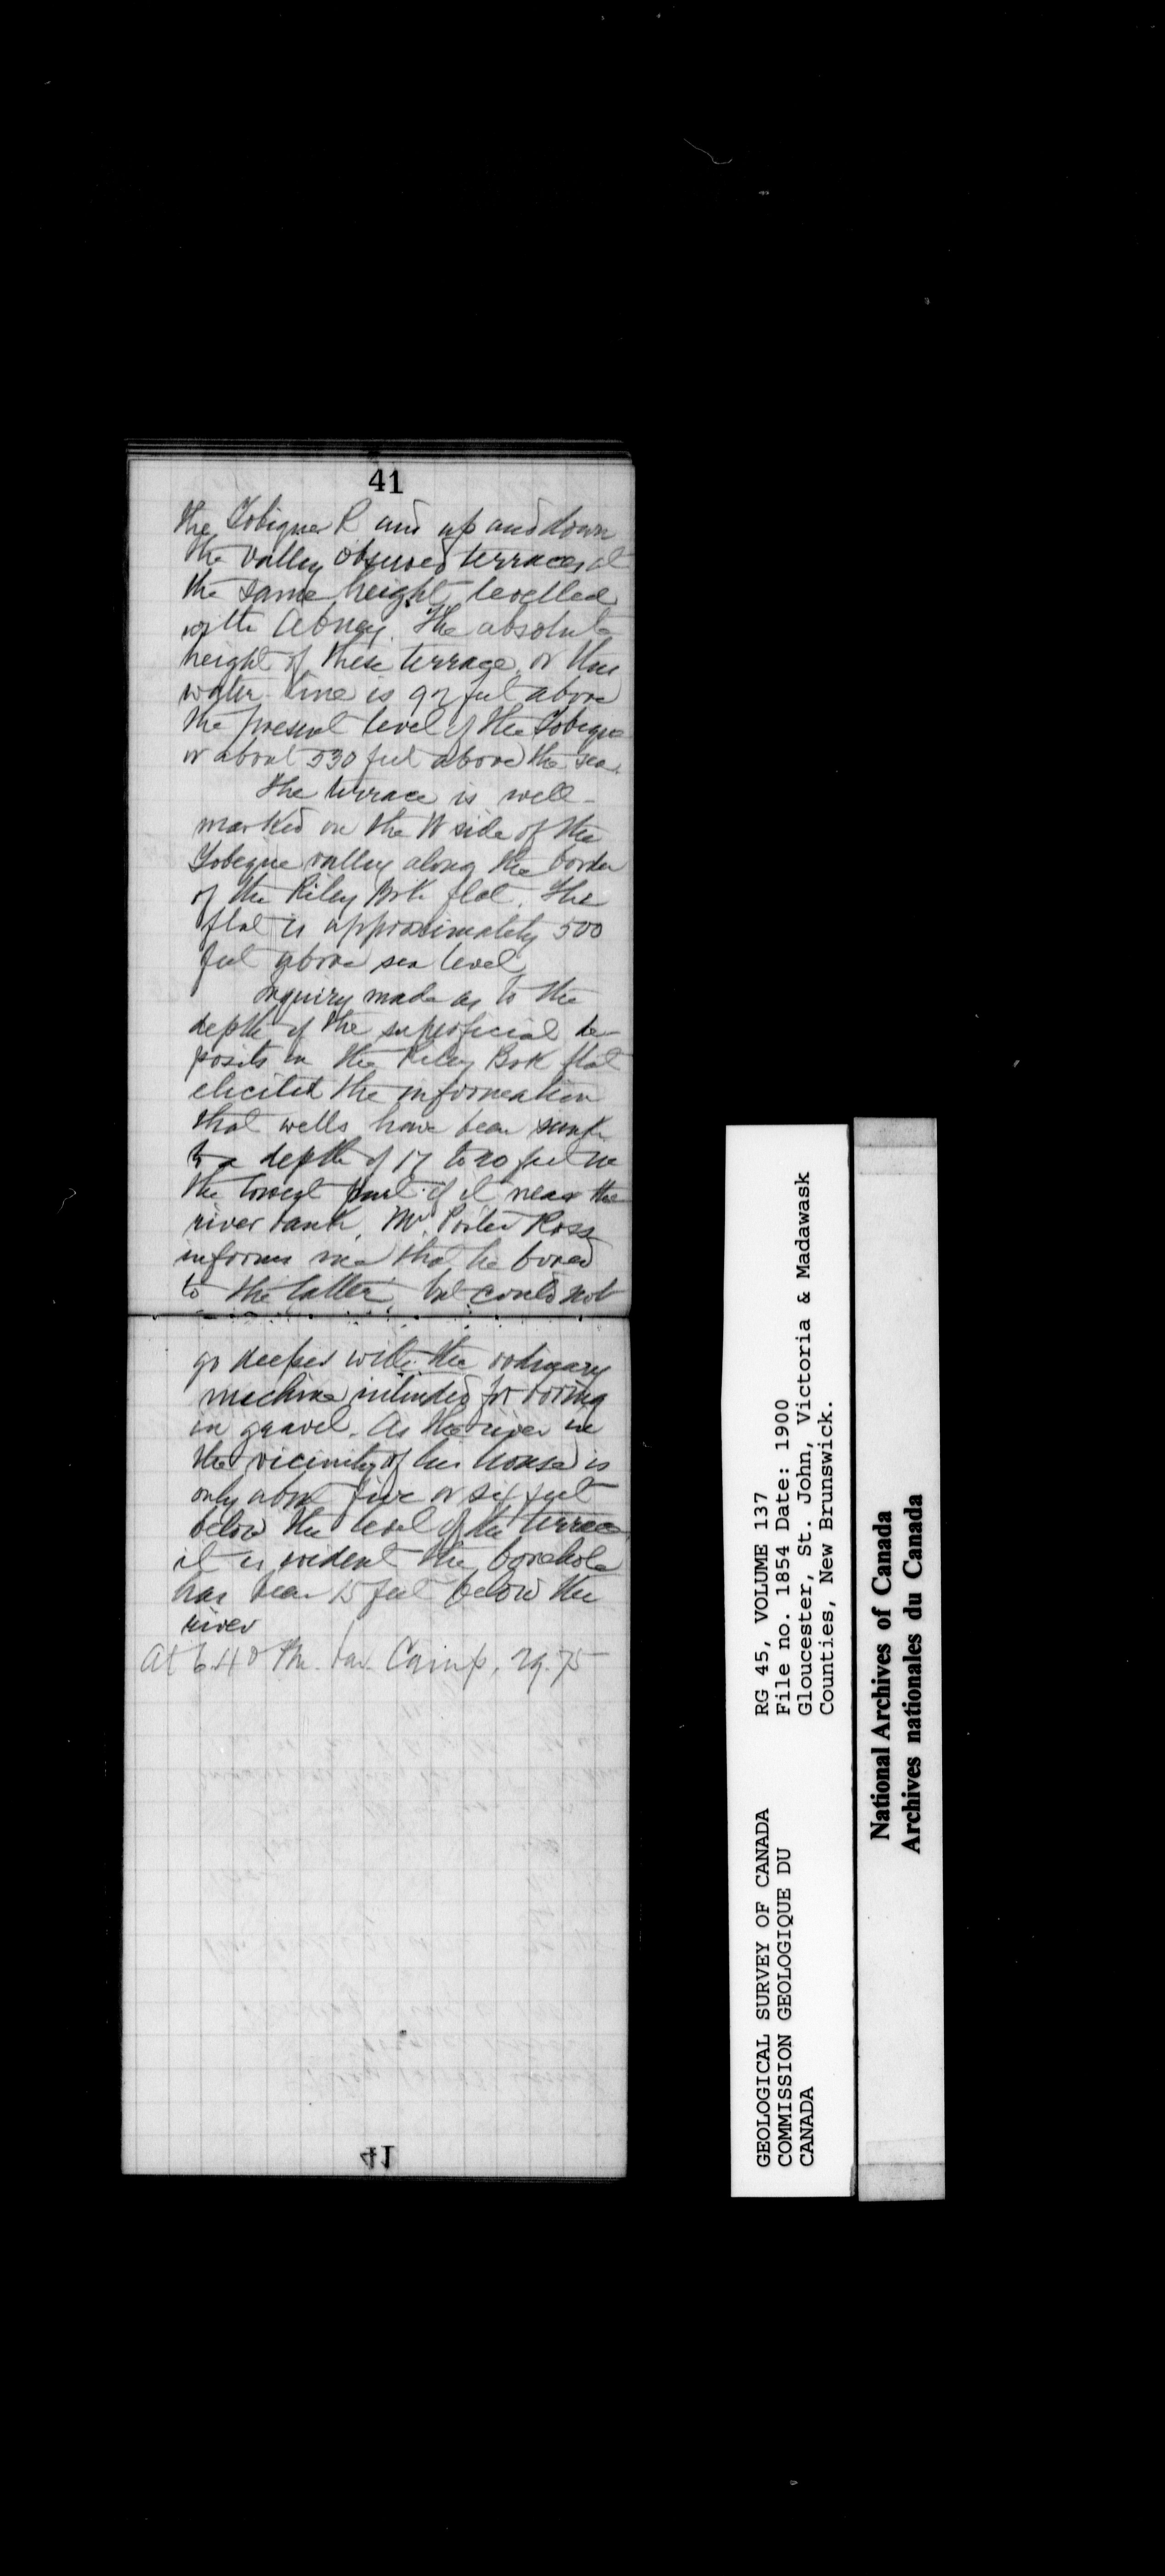 41
the Tobique R and up and down
the valley observed terraces at
the same height levelled
with Abney. The absolute
height of these terrace or this
water-line is 92 feet above
the present level of the Tobique
or about 530 feet above the sea.
The terrace is well-
marked on the W side of the
Tobique valley along the border
of the Riley Brk flat. The
flat is approximately 500
feet above sea level
Inquiry made as to the
depth of the superficial de-
posits in the Riley Brk flat
elicited the information
that wells have been sunk
to a depth of 17 to 20 feet in
the lowest part of it near the
river bank. Mr. Porter Ross
informs me that he bored
to the latter, but could not
go deeper with the ordinary
machine intended for boring
in gravel. As the river in
the vicinity of his house is
only about five or six feet
below the level of the terrace
it is evident the borehole
has been 15 feet below the
river
At 6.40 Pm. bar. Camp, 29.75
41
GEOLOGICAL SURVEY OF CANADA
COMMISSION GEOLOGIQUE DU
CANADA
RG 45, VOLUME 137
File no. 1854 Date: 1900
Gloucester, St. John, Victoria & Madawask
Counties, New Brunswick.
National Archives of Canada
Archives nationales du Canada